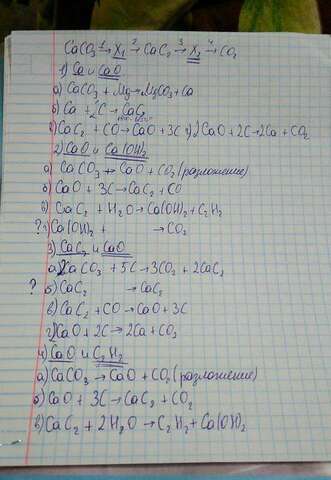 CaCO₃ →¹ X₁ →² CaC₂ →³ X₂ →⁴ CO₂
1) Ca и CaO
а) CaCO₃ + Mg → MgCO₃ + Ca
б) Ca + 2C → CaC₂
в) CaC₂ + CO → CaO + 3C г) 2CaO + 2C → 2Ca + CO₂
2) CaO и Ca(OH)₂
а) CaCO₃ → CaO + CO₂ (разложение)
б) CaO + 3C → CaC₂ + CO
в) CaC₂ + H₂O → Ca(OH)₂ + C₂H₂
? г) Ca(OH)₂ + → CO₂
3) CaC₂ и CaO
а) 2CaCO₃ + 5C → 3CO₂ + 2CaC₂
? б) CaC₂ → CaC₂
в) CaC₂ + CO → CaO + 3C
г) 2CaO + 2C → 2Ca + CO₂
4) CaO и C₂H₂
а) CaCO₃ → CaO + CO₂ (разложение)
б) CaO + 3C → CaC₂ + CO₂
в) CaC₂ + 2H₂O → C₂H₂ + Ca(OH)₂